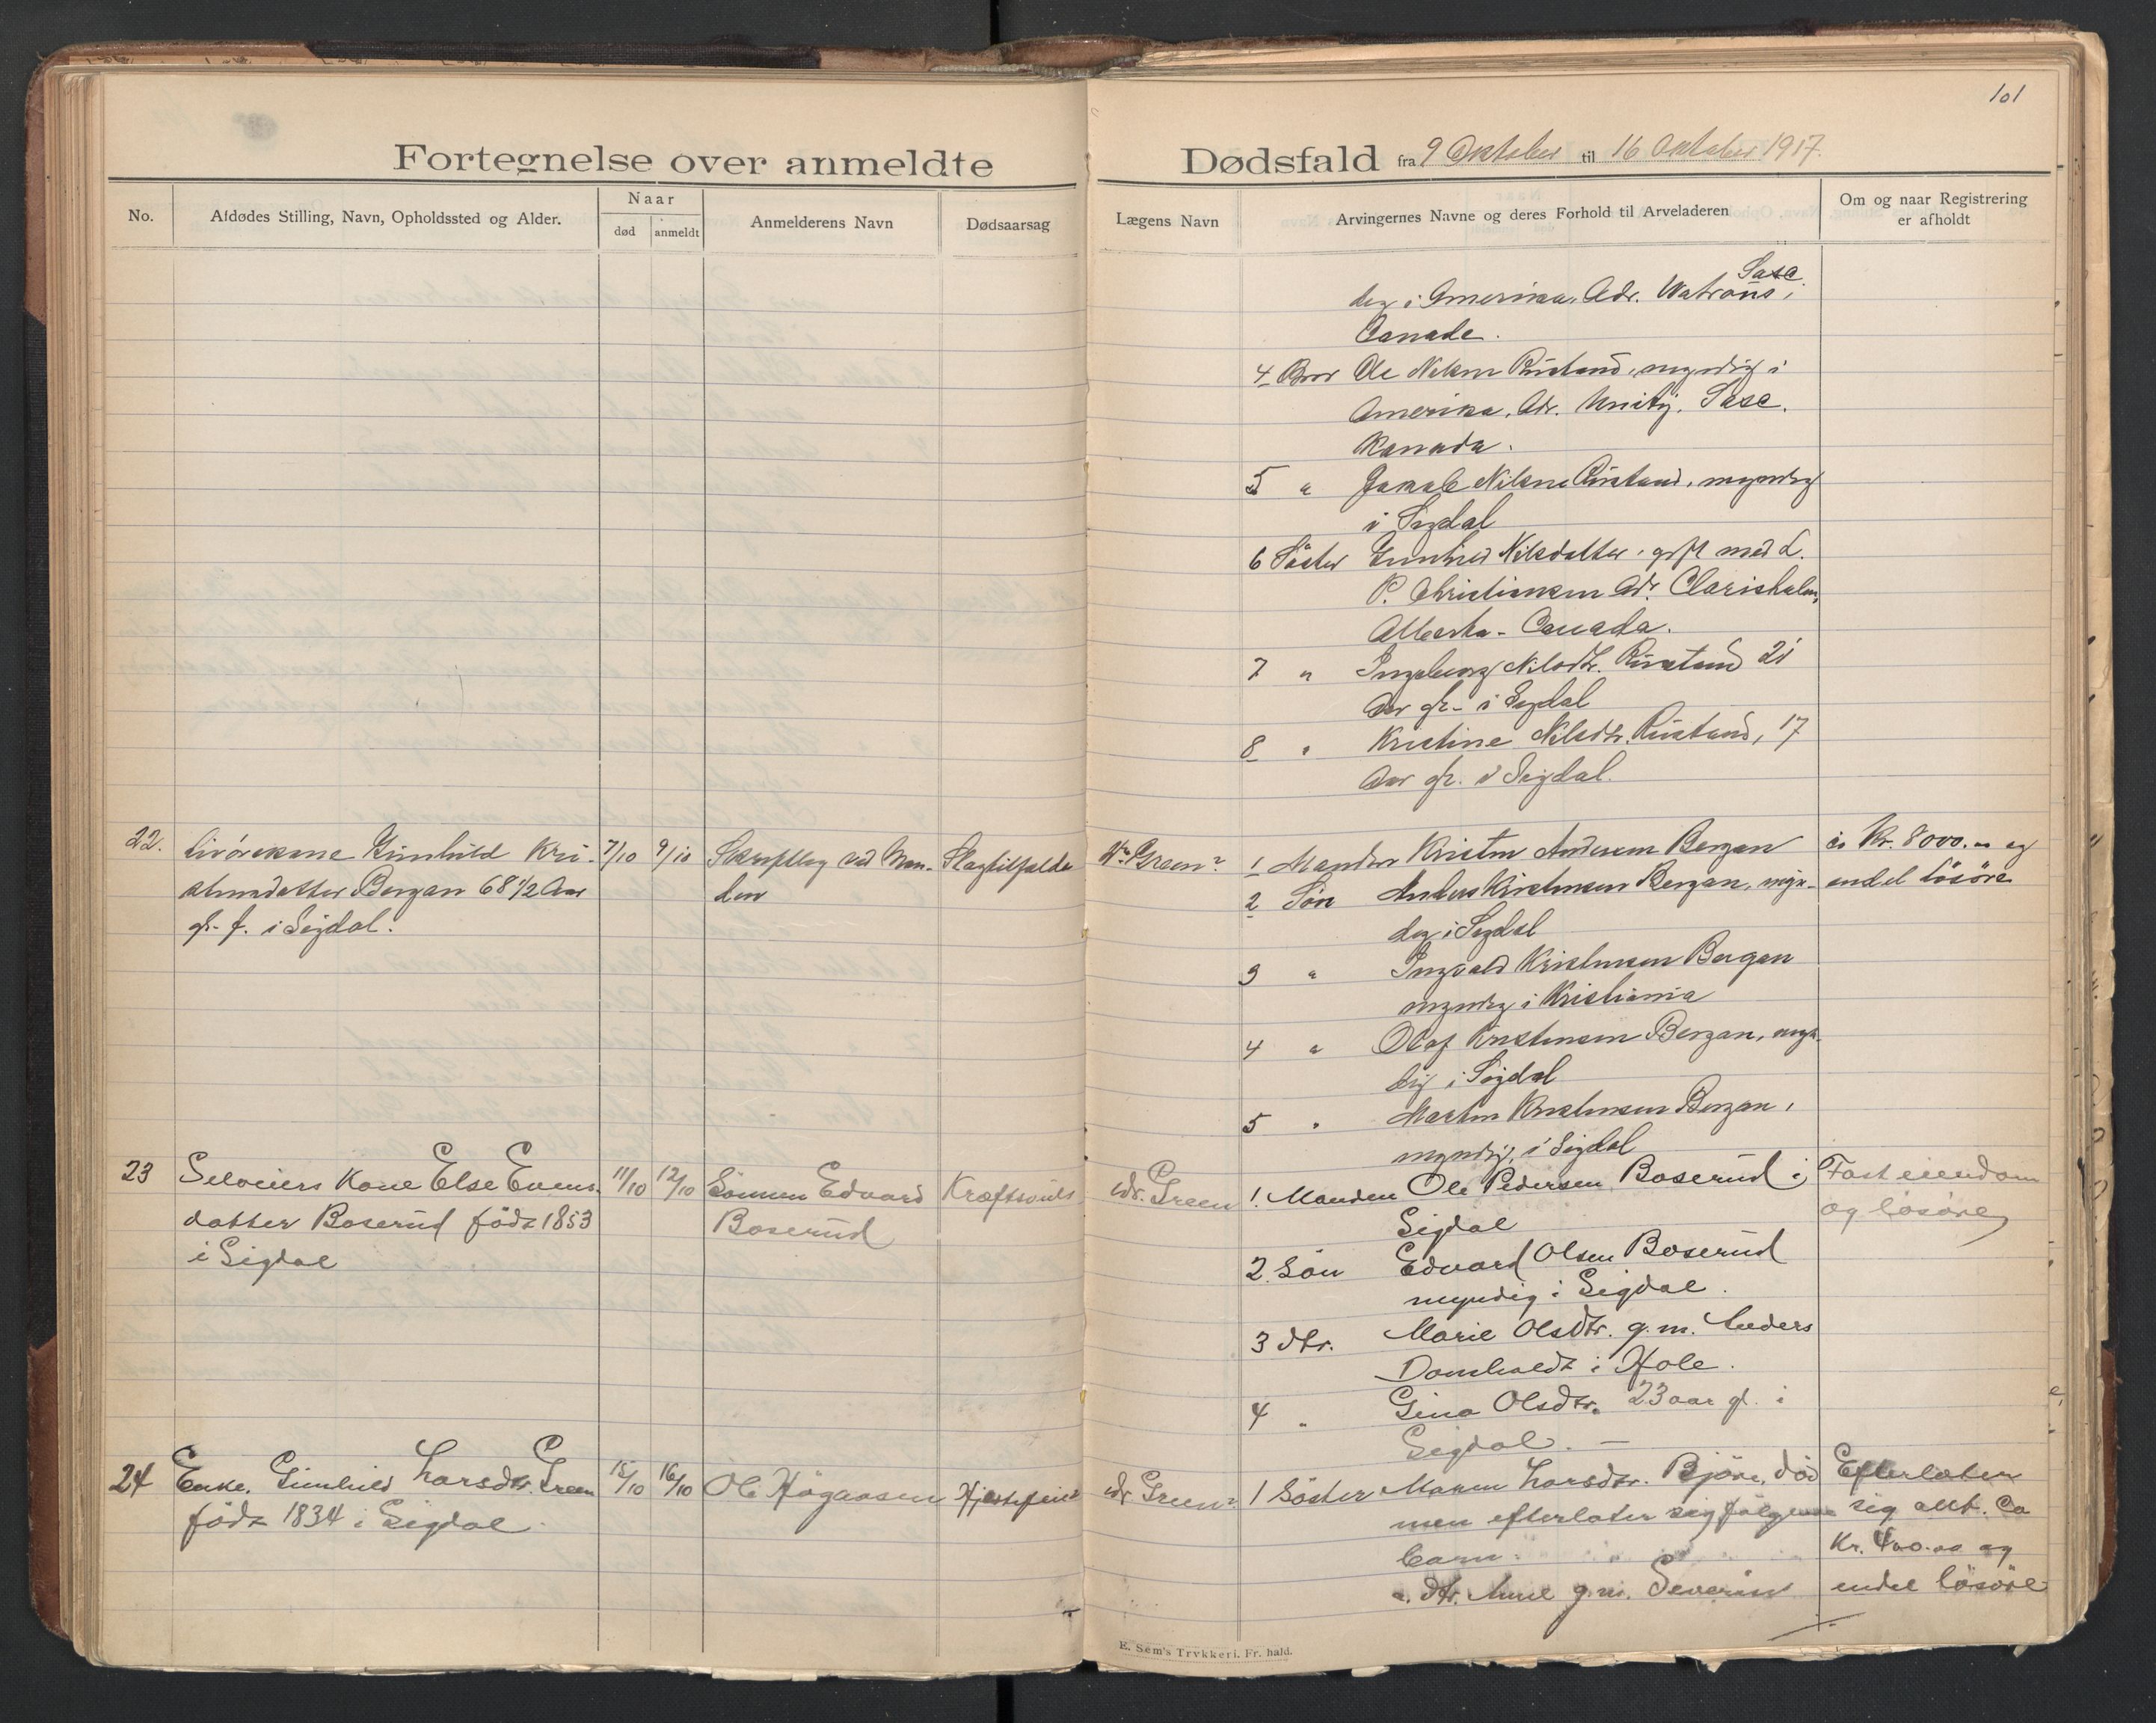 101
Fortegnelse over anmeldte
Dødsfald fra 9 Oktober til 16 Oktober 1917.
No.
Afdødes Stilling, Navn, Opholdssted og Alder.
Naar
død
anmeldt
Anmelderens Navn
Dødsaarsag
Lægens Navn
Arvingernes Navne og deres Forhold til Arveladeren
Om og naar Registrering
er afholdt
Sasc.
dig i Amerika. Adr. Watrous,
Canada.
4 Bror Ole Nilsen Rustand, myndig i
Amerika. Adr. Unity. Sasc.
Kanada.
5 " Jakob Nilsen Rustand, myndig
i Sigdal
6 Søster Gunhild Nilsdatter, gift med L.
P. Christiansen Adr. Clarisholm,
Alberta - Canada.
7 " Ingeborg Nilsdtr. Rustand 21
Aar gl. i Sigdal
8 " Kristine Nilsdtr. Rustand, 17
Aar gl. i Sigdal.
22. Livörekone Gunhild Kri-
stensdatter Bergan 68 1/2 Aar
gl. f. i Sigdal.
7/10 9/10
Skriftlig ved Man-
den
Slagtilfælde
Dr. Green
1 Manden Kristen Andersen Bergan
2 Søn Anders Kristensen Bergan, myn-
dig i Sigdal
3 " Ingvald Kristensen Bergan
myndig i Kristiania
4 " Olaf Kristensen Bergan, myn-
dig i Sigdal
5 " Martin Kristensen Bergan,
myndig, i Sigdal
Kr. 8000.- og
endel lösöre
23 Selveiers Kone Else Evens-
datter Boserud födt 1853
i Sigdal
11/10 12/10
Sönnen Edvard
Boserud
Kræftsvuls
Dr. Green
1. Manden Ole Pedersen Boserud i
Sigdal
2. Sön Edvard Olsen Boserud
myndig i Sigdal.
3 dtr. Marie Olsdtr. g.m. Anders
Domholdt i Hole.
4 " Gina Olsdtr. 23 aar gl. i
Sigdal. —
Fast eiendom
og lösöre
24 Enke. Gunhild Larsdtr. Green
födt 1834 i Sigdal.
15/10 16/10
Ole Högaasen
Hjertefeil
Dr Green
1 Söster Maren Larsdtr. Björe, död
men efterlater sig fölgende
barn.
a. dtr. Anne g.m. Severin
Efterlater
sig alt. Ca
Kr. 400.00 og
endel lösöre
E. Sem's Trykkeri. Fr.hald.